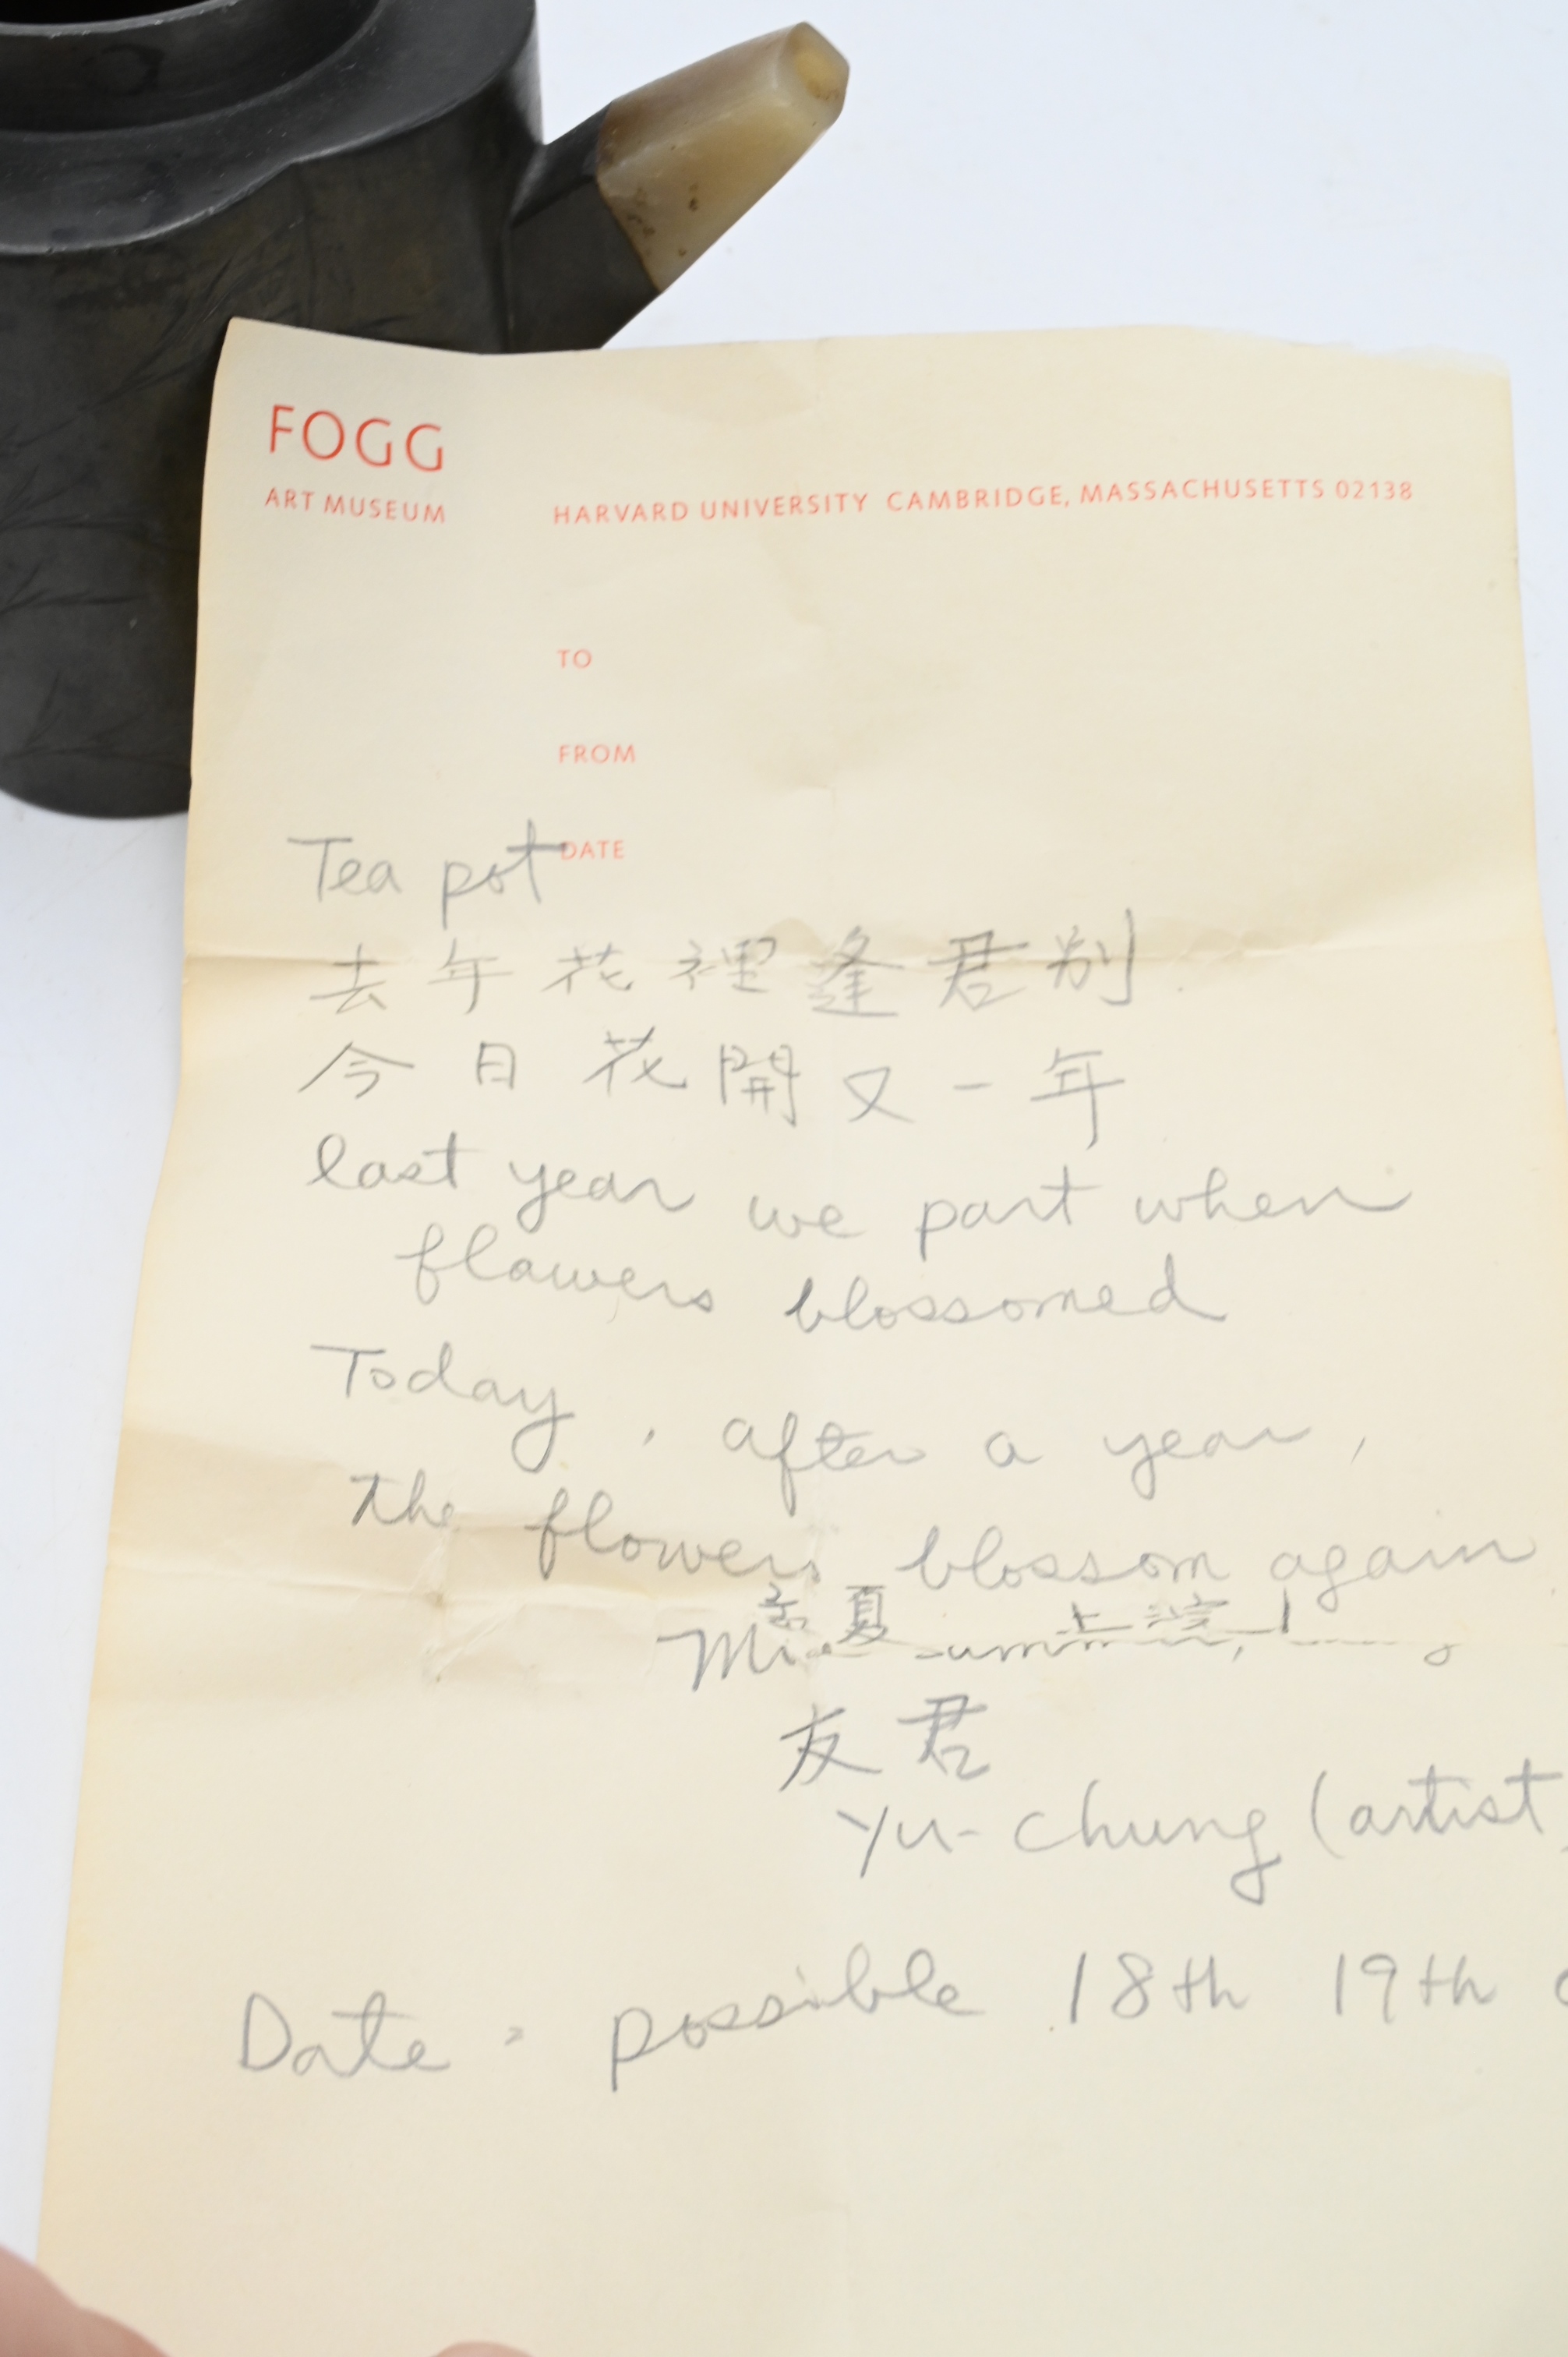 FOGG
ART MUSEUM HARVARD UNIVERSITY CAMBRIDGE, MASSACHUSETTS 02138
TO
FROM
DATE
Tea pot
去年花裡逢君別
今日花開又一年
last year we part when
flowers blossomed
Today, after a year,
the flowers blossom again
夏 上浣
友君
Yu-chung (artist
Date: possible 18th 19th